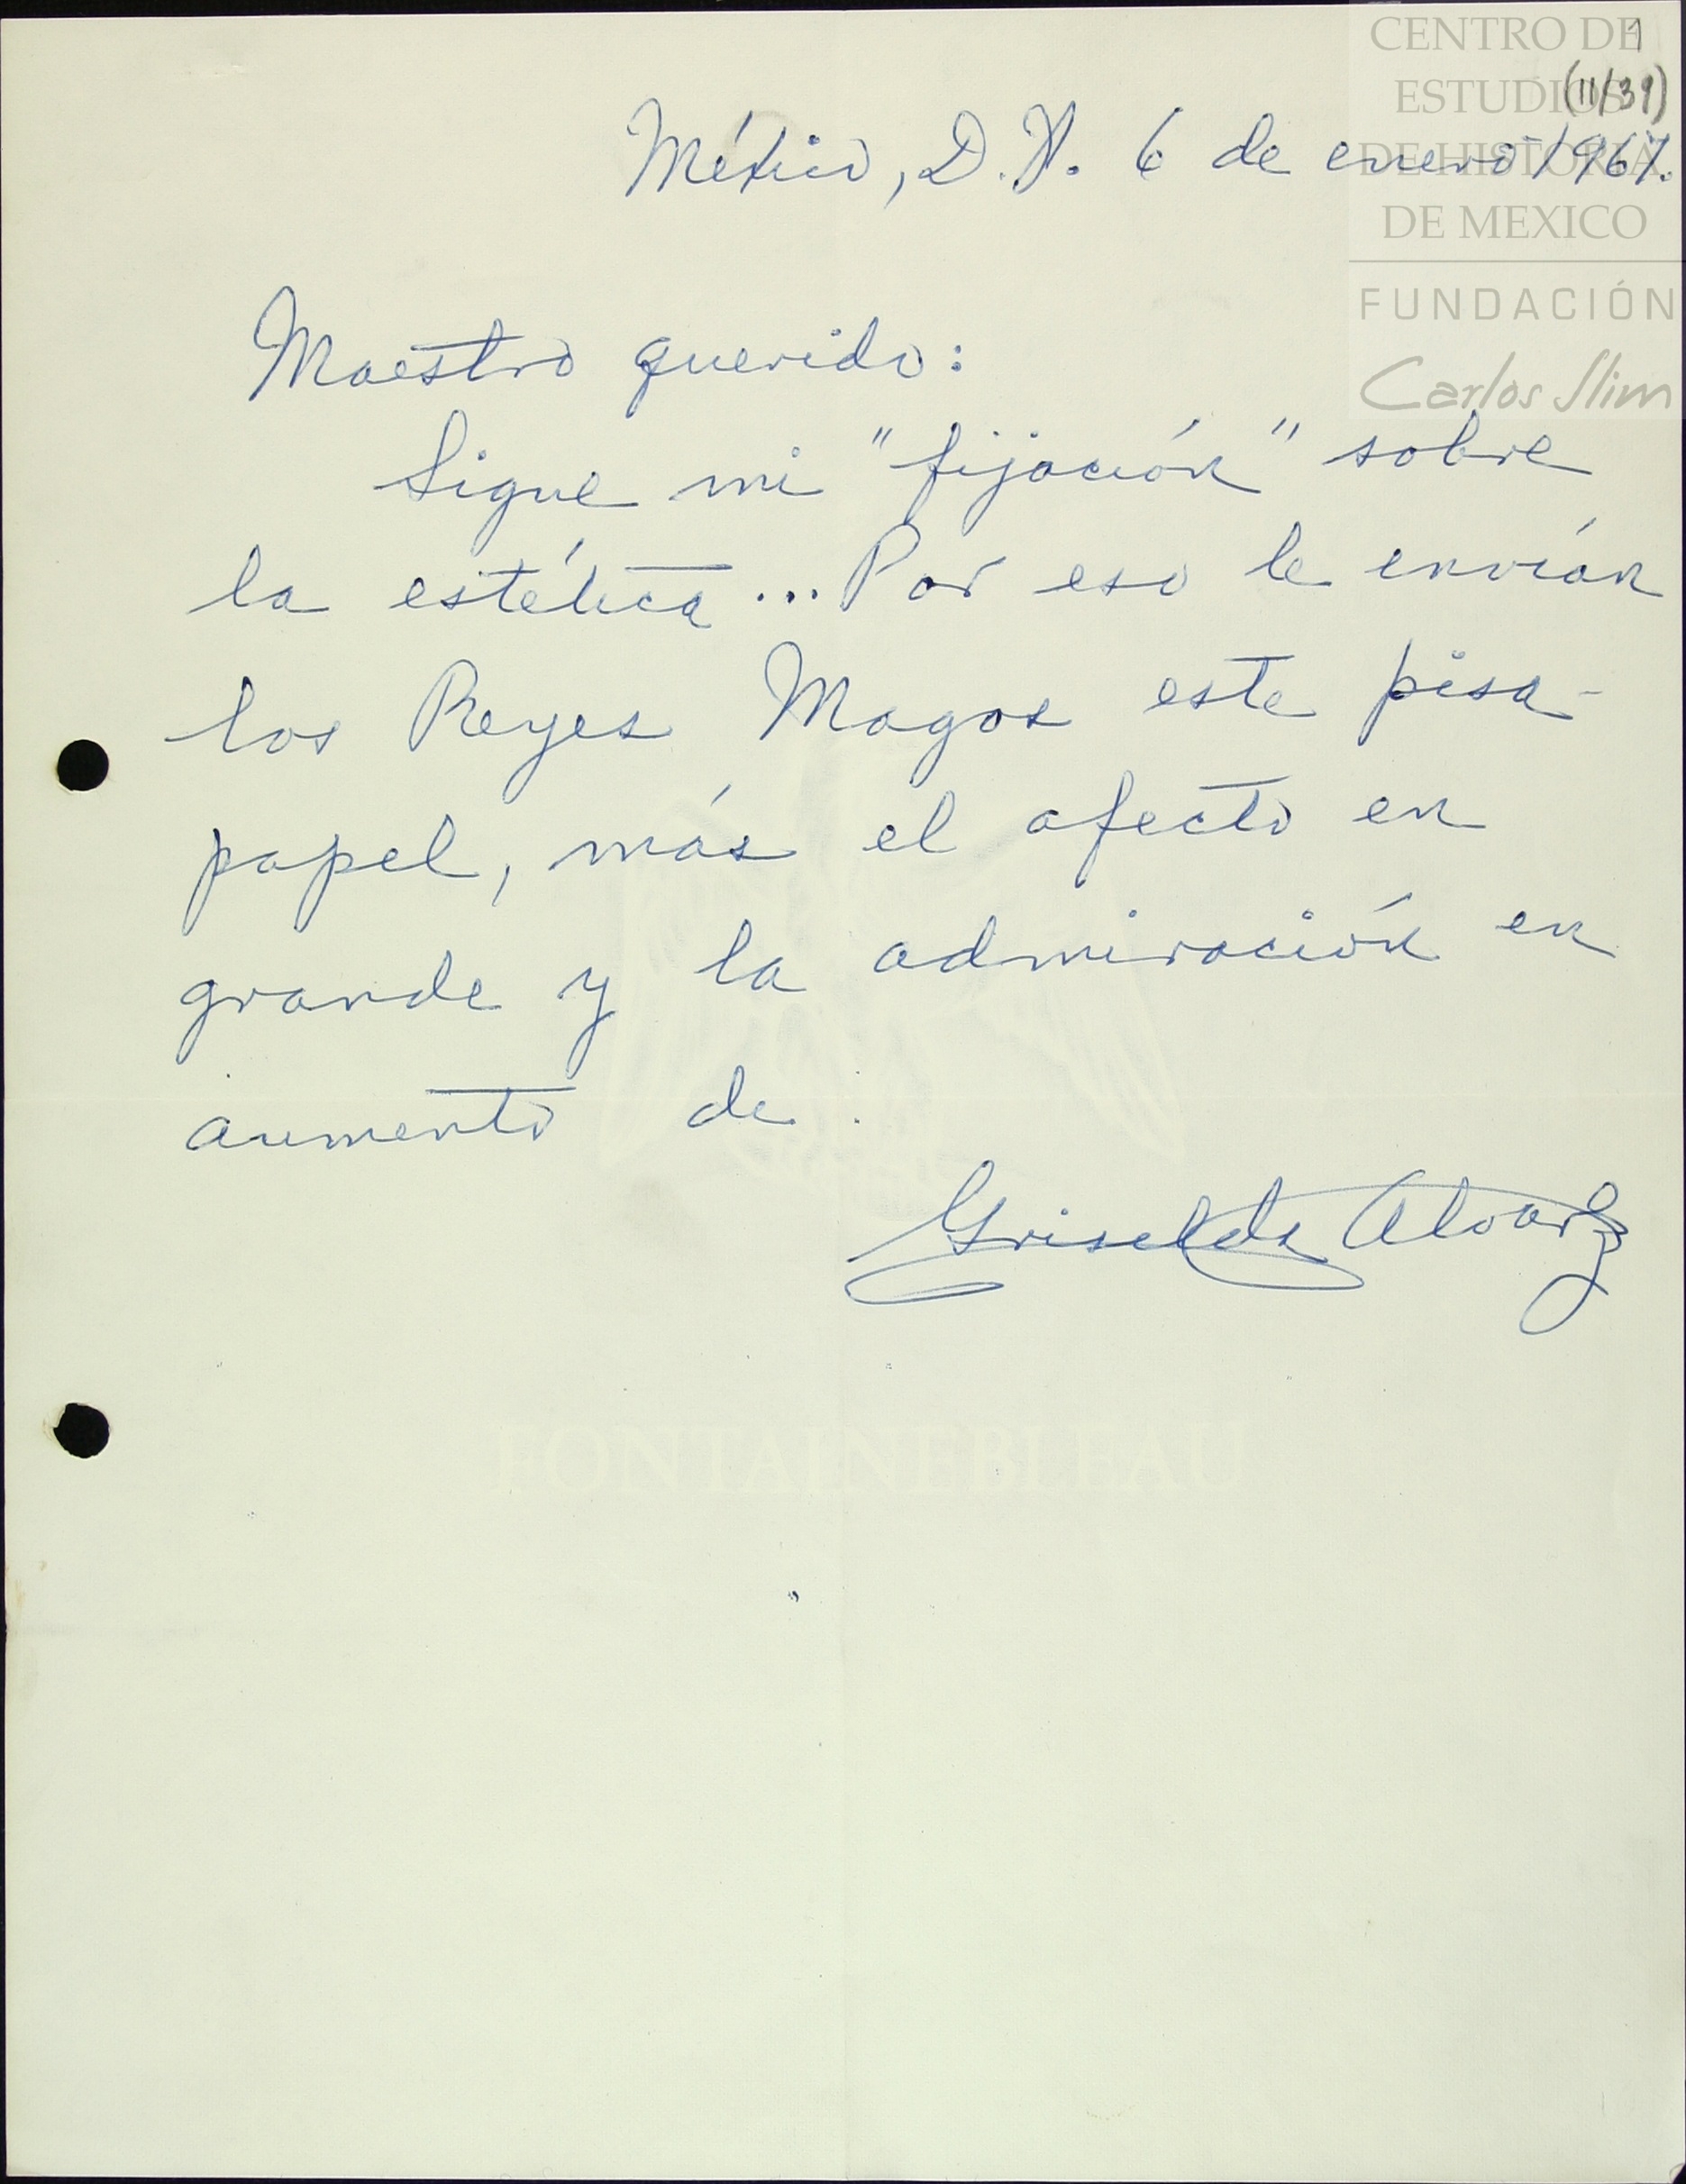 CENTRO DE
ESTUDIOS
DE HISTORIA
DE MEXICO
FUNDACIÓN
Carlos Slim
1
(11/39)
México, D.F. 6 de enero 1967.
Maestro querido:
Sigue mi "fijación" sobre
la estética... Por eso le envían
los Reyes Magos este pisa-
papel, más el afecto en
grande y la admiración en
aumento de
Griselda Alvarez
FONTAINEBLEAU